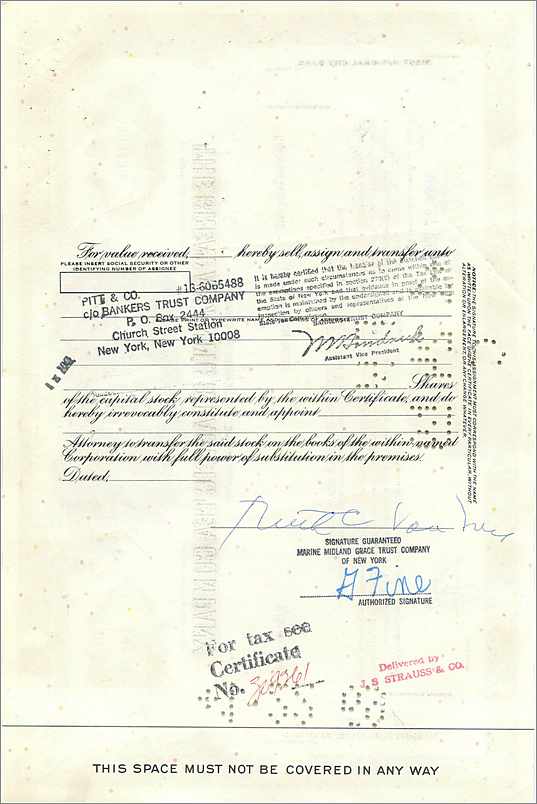 For value received, hereby sell, assign and transfer unto
PLEASE INSERT SOCIAL SECURITY OR OTHER
IDENTIFYING NUMBER OF ASSIGNEE
#13-6065488
PITT & CO.
c/o BANKERS TRUST COMPANY
P. O. Box 2444
Church Street Station
New York, New York 10008
It is hereby certified that the
is made under such circumstances as to come within
the exemptions specified in section 270(f) of the Tax
the State of New York and that evidence in proof of
emption is maintained by the undersigned
inspection by officers and representatives of the
TRUST COMPANY
Assistant Vice President
Shares
of the capital stock, represented by the within Certificate, and do
hereby irrevocably constitute and appoint
Attorney to transfer the said stock on the books of the within named
Corporation, with full power of substitution in the premises.
Dated,
NOTICE: THE SIGNATURE TO THIS ASSIGNMENT MUST CORRESPOND WITH THE NAME
AS WRITTEN UPON THE FACE OF THE CERTIFICATE IN EVERY PARTICULAR, WITHOUT
ALTERATION OR ENLARGEMENT OR ANY CHANGE WHATEVER.
SIGNATURE GUARANTEED
MARINE MIDLAND GRACE TRUST COMPANY
OF NEW YORK
G Fine
AUTHORIZED SIGNATURE
For tax see
Certificate
No.
Delivered by
J. S STRAUSS & CO.
THIS SPACE MUST NOT BE COVERED IN ANY WAY